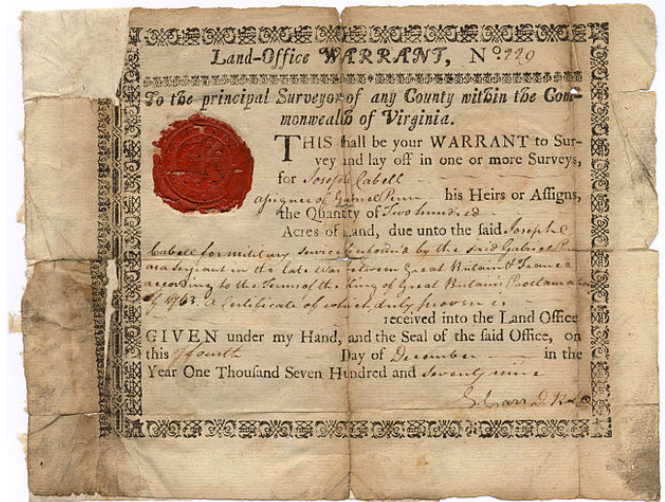 Land-Office WARRANT, No. 929
To the principal Surveyor of any County within the Com-
monwealth of Virginia.
THIS shall be your WARRANT to Sur-
vey and lay off in one or more Surveys,
for Joseph Cabell
assignee of Gabriel Penn his Heirs or Assigns,
the Quantity of Two hundred
Acres of Land, due unto the said Joseph C
Cabell for military service performed by the said Gabriel
as a Sergeant in the late War between Great Britain & France
according to the Terms of the King of Great Britain's Proclamation
of 1763. A Certificate of which duly proven is
received into the Land Office
GIVEN under my Hand, and the Seal of the said Office, on
this fourth Day of December in the
Year One Thousand Seven Hundred and seventy nine